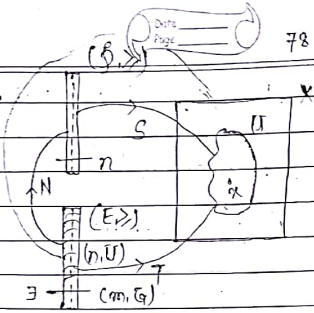 Date
Page
78
(D, ≥)
X
S
U
n
x
N
(E, ≥)
(n, U)
T
∃ (m, G)